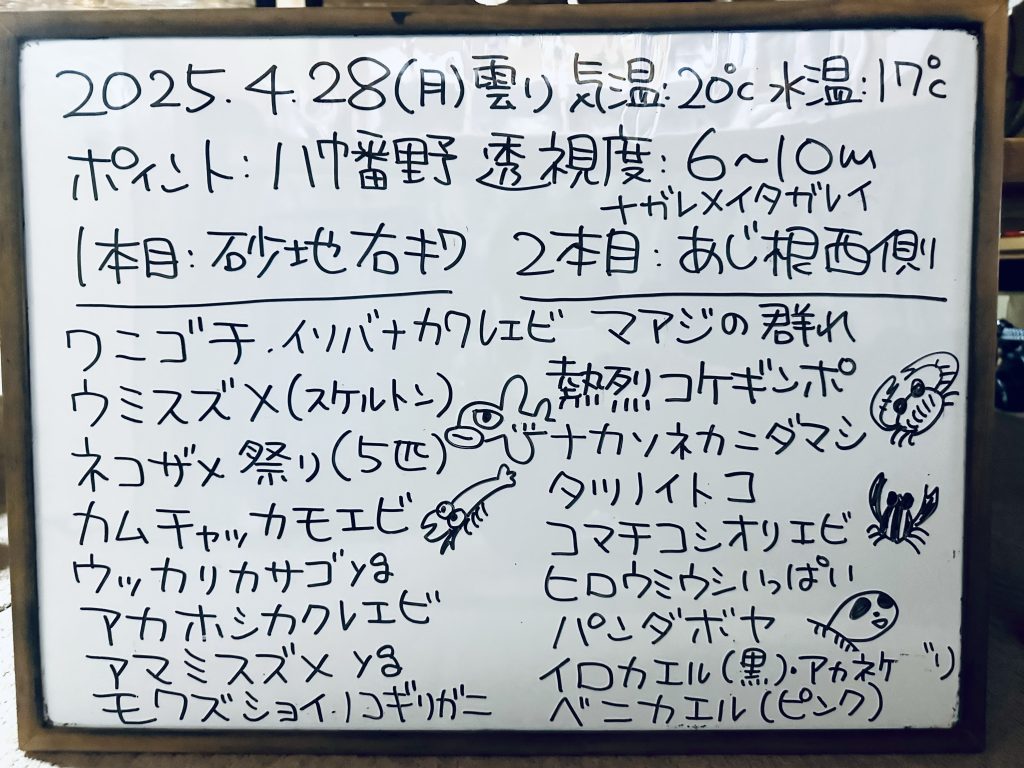 2025.4.28(月)雲り 気温:20℃ 水温:17℃
ポイント:八幡野 透視度:6~10m
ナガレメイタガレイ
1本目:砂地右キワ
ワニゴチ.イソバナカクレエビ
ウミスズメ(スケルトン)
ネコザメ祭り(5匹)
カムチャッカモエビ
ウッカリカサゴyg
アカホシカクレエビ
アマミスズメyg
モクズショイ.ノコギリガニ
2本目:あじ根西側
マアジの群れ
熱烈コケギンポ
ナカソネカニダマシ
タツノイトコ
コマチコシオリエビ
ヒロウミウシいっぱい
パンダボヤ
イロカエル(黒)・アカネケ
ベニカエル(ピンク)